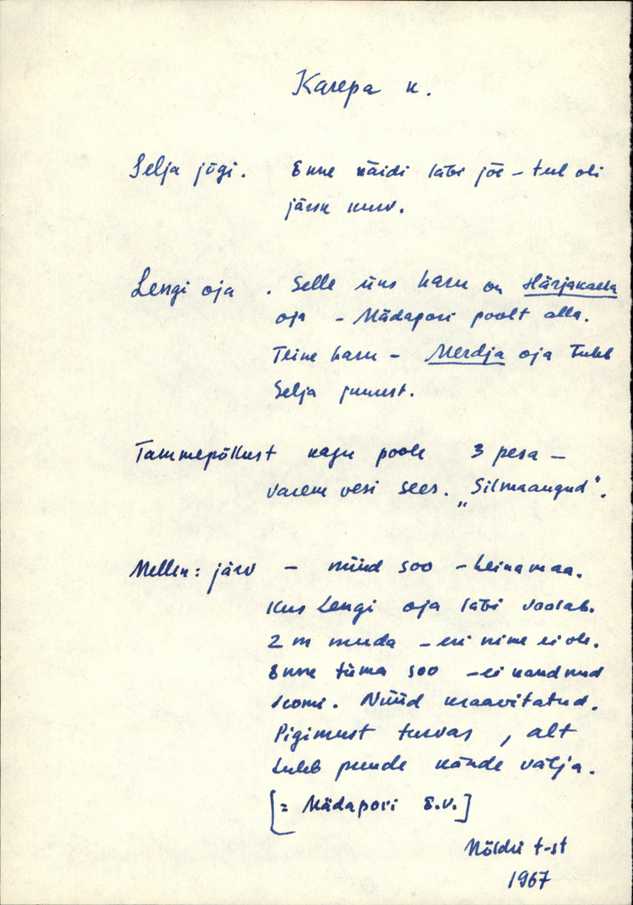 Karepa k.
Selja jõgi. Enne käidi läbi jõe - tul oli
järsk kurv.
Lengi oja. Selle üks haru on Härjakaela
oja - Mädapori poolt alla.
Teine haru - Merdja oja tuleb
Selja juurest.
Tammepõllust kagu poole 3 pesa -
varem vesi sees. „Silmaaugud".
järv - nüüd soo - heinamaa.
Kus Lengi oja läbi voolab.
2 m muda - eri nime ei ole.
Enne tüma soo - ei kandnud
loomi. Nüüd kraavitatud.
Pigimust turvas, alt
tuleb puude kände välja.
[= Mädapori E.V.]
t-st
1967